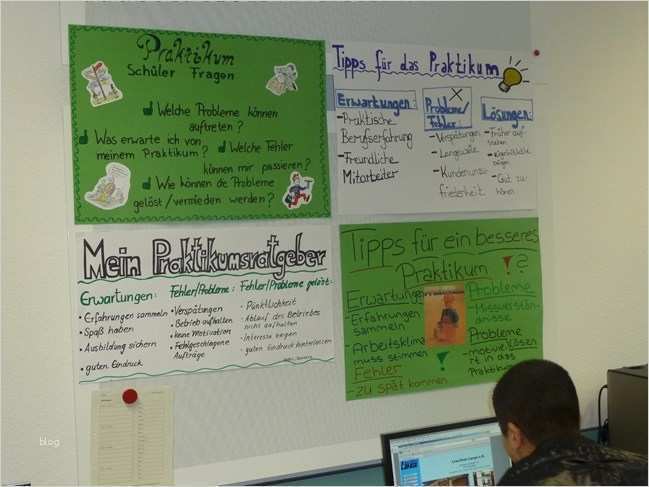 Praktikum
Schüler Fragen
Welche Probleme können
auftreten?
Was erwarte ich von
meinem Praktikum?
Welche Fehler
können mir passieren?
Wie können die Probleme
gelöst/vermieden werden?
Tipps für das Praktikum
Erwartungen:
-Praktische
Berufserfahrung
-Freundliche
Mitarbeiter
Probleme/
Fehler
-Verspätungen
-Langeweile
-Kundenunzu-
friedenheit
Lösungen:
-Früher auf-
stehen
-Gut zu
hören
Mein Praktikumsratgeber
Erwartungen:
• Erfahrungen sammeln
• Spaß haben
• Ausbildung sichern
• guten Eindruck
Fehler/Probleme:
• Verspätungen
• Betrieb aufhalten
• keine Motivation
• Fehlgeschlagene
Aufträge
Fehler/Probleme gelöst:
- Pünktlichkeit
- Ablauf des Betriebes
nicht aufhalten
- Interesse zeigen
- guten Eindruck hinterlassen
Tipps für ein besseres
Praktikum !?
Erwartungen
-Erfahrungen
sammeln
-Arbeitsklima
muss stimmen
Fehler
-zu spät kommen
Probleme
-Missverstän-
dnisse
Probleme
lösen
rt in das
Praktikum
blog